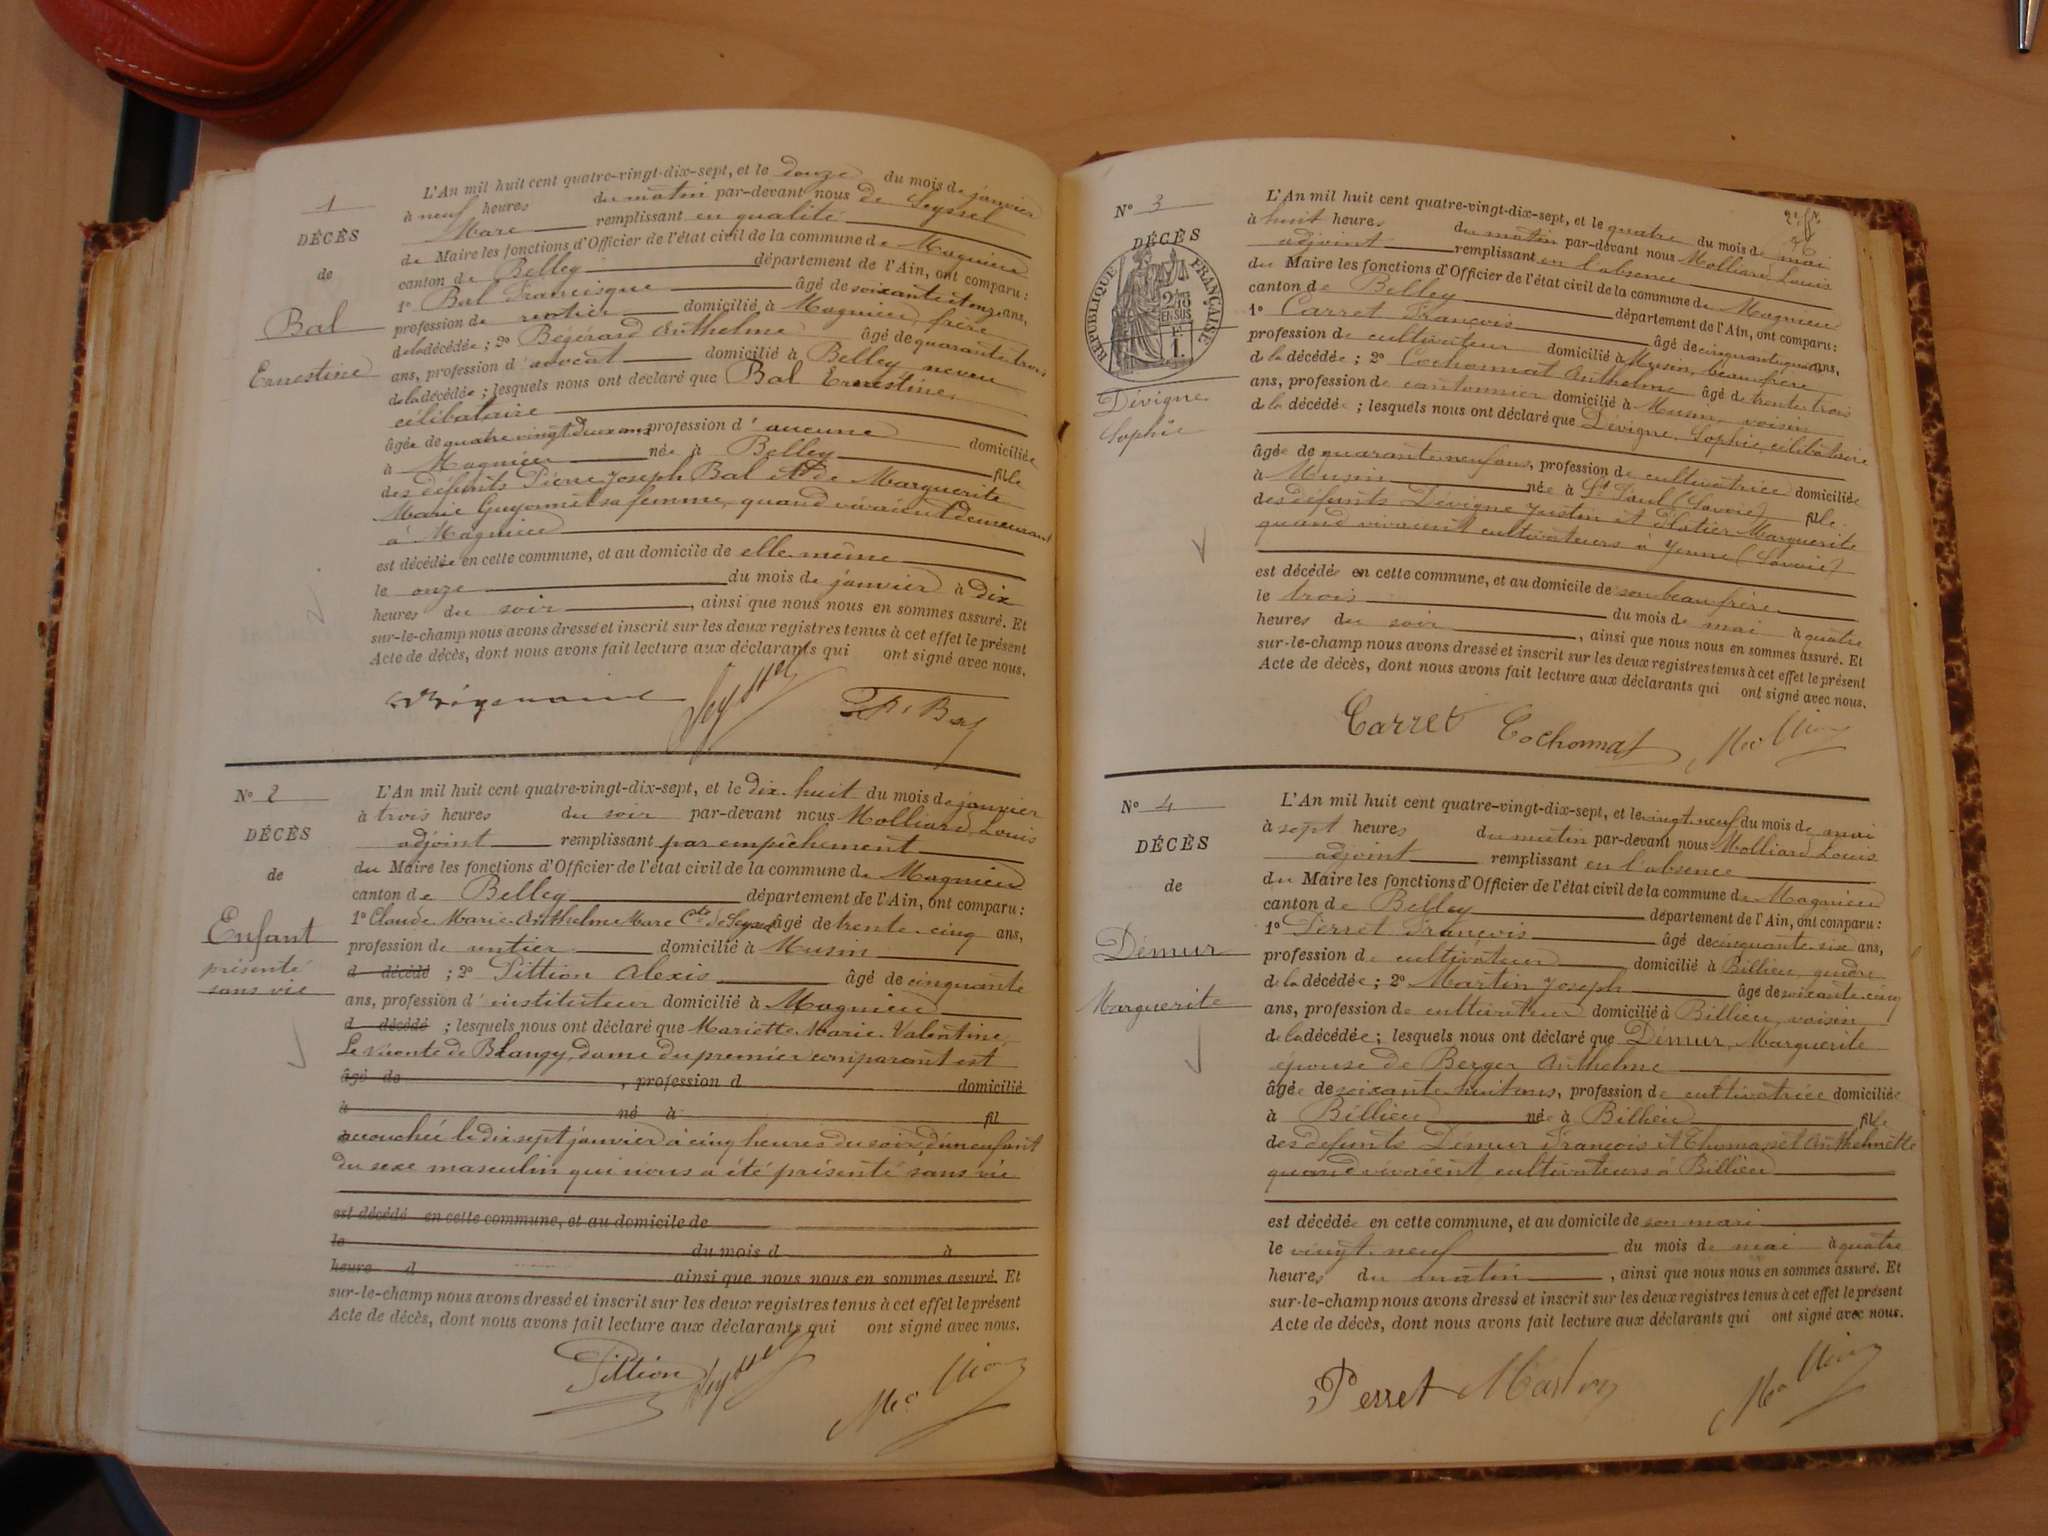 1
DÉCÈS
de
Bal
Ernestine
L'An mil huit cent quatre-vingt-dix-sept, et le douze du mois de janvier
à neuf heures du matin par-devant nous de Seyssel
Marc remplissant en qualité
de Maire les fonctions d'Officier de l'état civil de la commune de Magnieu
canton de Belley département de l'Ain, ont comparu :
1º Bal Francisque âgé de soixante et onze ans,
profession de rentier domicilié à Magnieu, frère
de la décédée ; 2º Bégérard Anthelme âgé de quarante trois
ans, profession d'avocat domicilié à Belley neveu
de la décédée ; lesquels nous ont déclaré que Bal Ernestine,
célibataire
âgée de quatre vingt deux ans profession d'aucune domiciliée
à Magnieu née à Belley fille
des défunts Pierre Joseph Bal et de Marguerite
Marie Guyonnet sa femme, quand vivaient demeurant
à Magnieu
est décédée en cette commune, et au domicile de elle même
le onze du mois de janvier à dix
heures du soir, ainsi que nous nous en sommes assuré. Et
sur-le-champ nous avons dressé et inscrit sur les deux registres tenus à cet effet le présent
Acte de décès, dont nous avons fait lecture aux déclarants qui ont signé avec nous.
Seyssel Bal
Nº 2
DÉCÈS
de
Enfant
présenté
sans vie
L'An mil huit cent quatre-vingt-dix-sept, et le dix-huit du mois de janvier
à trois heures du soir par-devant nous Molliard Louis
adjoint remplissant par empêchement
du Maire les fonctions d'Officier de l'état civil de la commune de Magnieu
canton de Belley département de l'Ain, ont comparu :
1º Claude Marie Anthelme Marc Cte de Seyssel âgé de trente-cinq ans,
profession de rentier domicilié à Musin
d décédé ; 2º Pittion Alexis âgé de cinquante
ans, profession d'instituteur domicilié à Magnieu
d décédé ; lesquels nous ont déclaré que Mariette Marie Valentine,
Le Viconte de Blangy, dame du premier comparant est
âgé de , profession d domicilié
à né à fil
accouchée le dix sept janvier à cinq heures du soir, d'un enfant
du sexe masculin qui nous a été présenté sans vie
est décédé en cette commune, et au domicile de
le du mois d à
heure d ainsi que nous nous en sommes assuré. Et
sur-le-champ nous avons dressé et inscrit sur les deux registres tenus à cet effet le présent
Acte de décès, dont nous avons fait lecture aux déclarants qui ont signé avec nous.
Pittion Seyssel Molliard
2e ft
Nº 3
DÉCÈS
RÉPUBLIQUE FRANÇAISE
2/10mes
EN SUS
1 F.
Dévigne
Sophie
L'An mil huit cent quatre-vingt-dix-sept, et le quatre du mois de mai
à huit heures du matin par-devant nous Molliard Louis
adjoint remplissant en l'absence
du Maire les fonctions d'Officier de l'état civil de la commune de Magnieu
canton de Belley département de l'Ain, ont comparu :
1º Carret François âgé de cinquante quatre ans,
profession de cultivateur domicilié à Musin, beau frère
de la décédée ; 2º Cochonnat Anthelme âgé de trente trois
ans, profession de cantonnier domicilié à Musin voisin
de la décédée ; lesquels nous ont déclaré que Dévigne Sophie, célibataire
âgée de quarante neuf ans, profession de cultivatrice domiciliée
à Musin née à St Paul (Savoie) fille
des défunts Dévigne Justin et Marguerite
quand vivaient cultivateurs à Yenne (Savoie)
est décédée en cette commune, et au domicile de son beau frère
le trois du mois de mai à quatre
heures du soir, ainsi que nous nous en sommes assuré. Et
sur-le-champ nous avons dressé et inscrit sur les deux registres tenus à cet effet le présent
Acte de décès, dont nous avons fait lecture aux déclarants qui ont signé avec nous.
Carret Cochonnat Molliard
Nº 4
DÉCÈS
de
Démur
Marguerite
L'An mil huit cent quatre-vingt-dix-sept, et le vingt neuf du mois de mai
à sept heures du matin par-devant nous Molliard Louis
adjoint remplissant en l'absence
du Maire les fonctions d'Officier de l'état civil de la commune de Magnieu
canton de Belley département de l'Ain, ont comparu :
1º Perret François âgé de cinquante-six ans,
profession de cultivateur domicilié à Billieu, gendre
de la décédée ; 2º Martin Joseph âgé de soixante-cinq
ans, profession de cultivateur domicilié à Billieu, voisin
de la décédée ; lesquels nous ont déclaré que Démur Marguerite
épouse de Berger Anthelme
âgée de soixante huit ans, profession de cultivatrice domiciliée
à Billieu née à Billieu fille
des défunts Démur François et Thomasset Anthelmette
quand vivaient, cultivateurs à Billieu
est décédée en cette commune, et au domicile de son mari
le vingt-neuf du mois de mai à quatre
heures du matin, ainsi que nous nous en sommes assuré. Et
sur-le-champ nous avons dressé et inscrit sur les deux registres tenus à cet effet le présent
Acte de décès, dont nous avons fait lecture aux déclarants qui ont signé avec nous.
Perret Martin Molliard